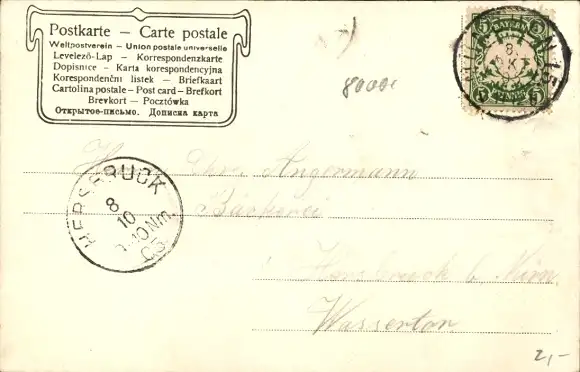 Postkarte – Carte postale
Weltpostverein – Union postale universelle
Levelező-Lap – Korrespondenzkarte
Dopisnice – Karta korespondencyjna
Korespondenční listek – Briefkaart
Cartolina postale – Post card – Brefkort
Brevkort – Pocztówka
Открытое-письмо. Дописна карта
5 BAYERN 5
8
OKT
5 5
HERSBRUCK
8
10
Nm.
03
Angermann
Bäckerei
Hersbruck b. Nürn
Wasserton
2,-